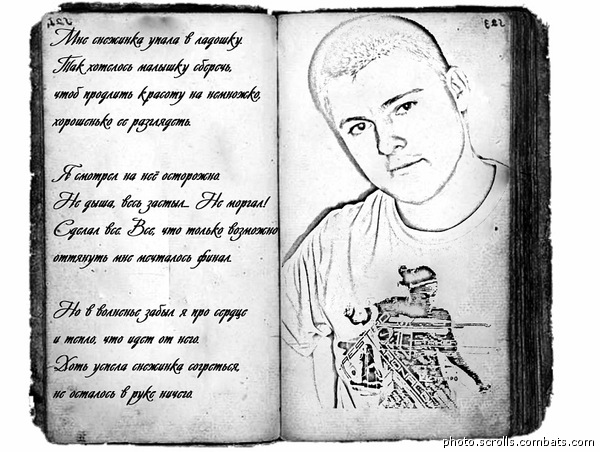 Мне снежинка упала в ладошку.
Так хотелось малышку сберечь,
чтоб продлить красоту на немножко,
хорошенько ее разглядеть.
Я смотрел на неё осторожно.
Не дыша, весь застыл... Не моргал!
Сделал все. Все, что только возможно
оттянуть мне мечталось финал.
Но в волненье забыл я про сердце
и тепло, что идет от него.
Хоть успела снежинка согреться,
не осталось в руке ничего.
photo.scrolls.combats.com